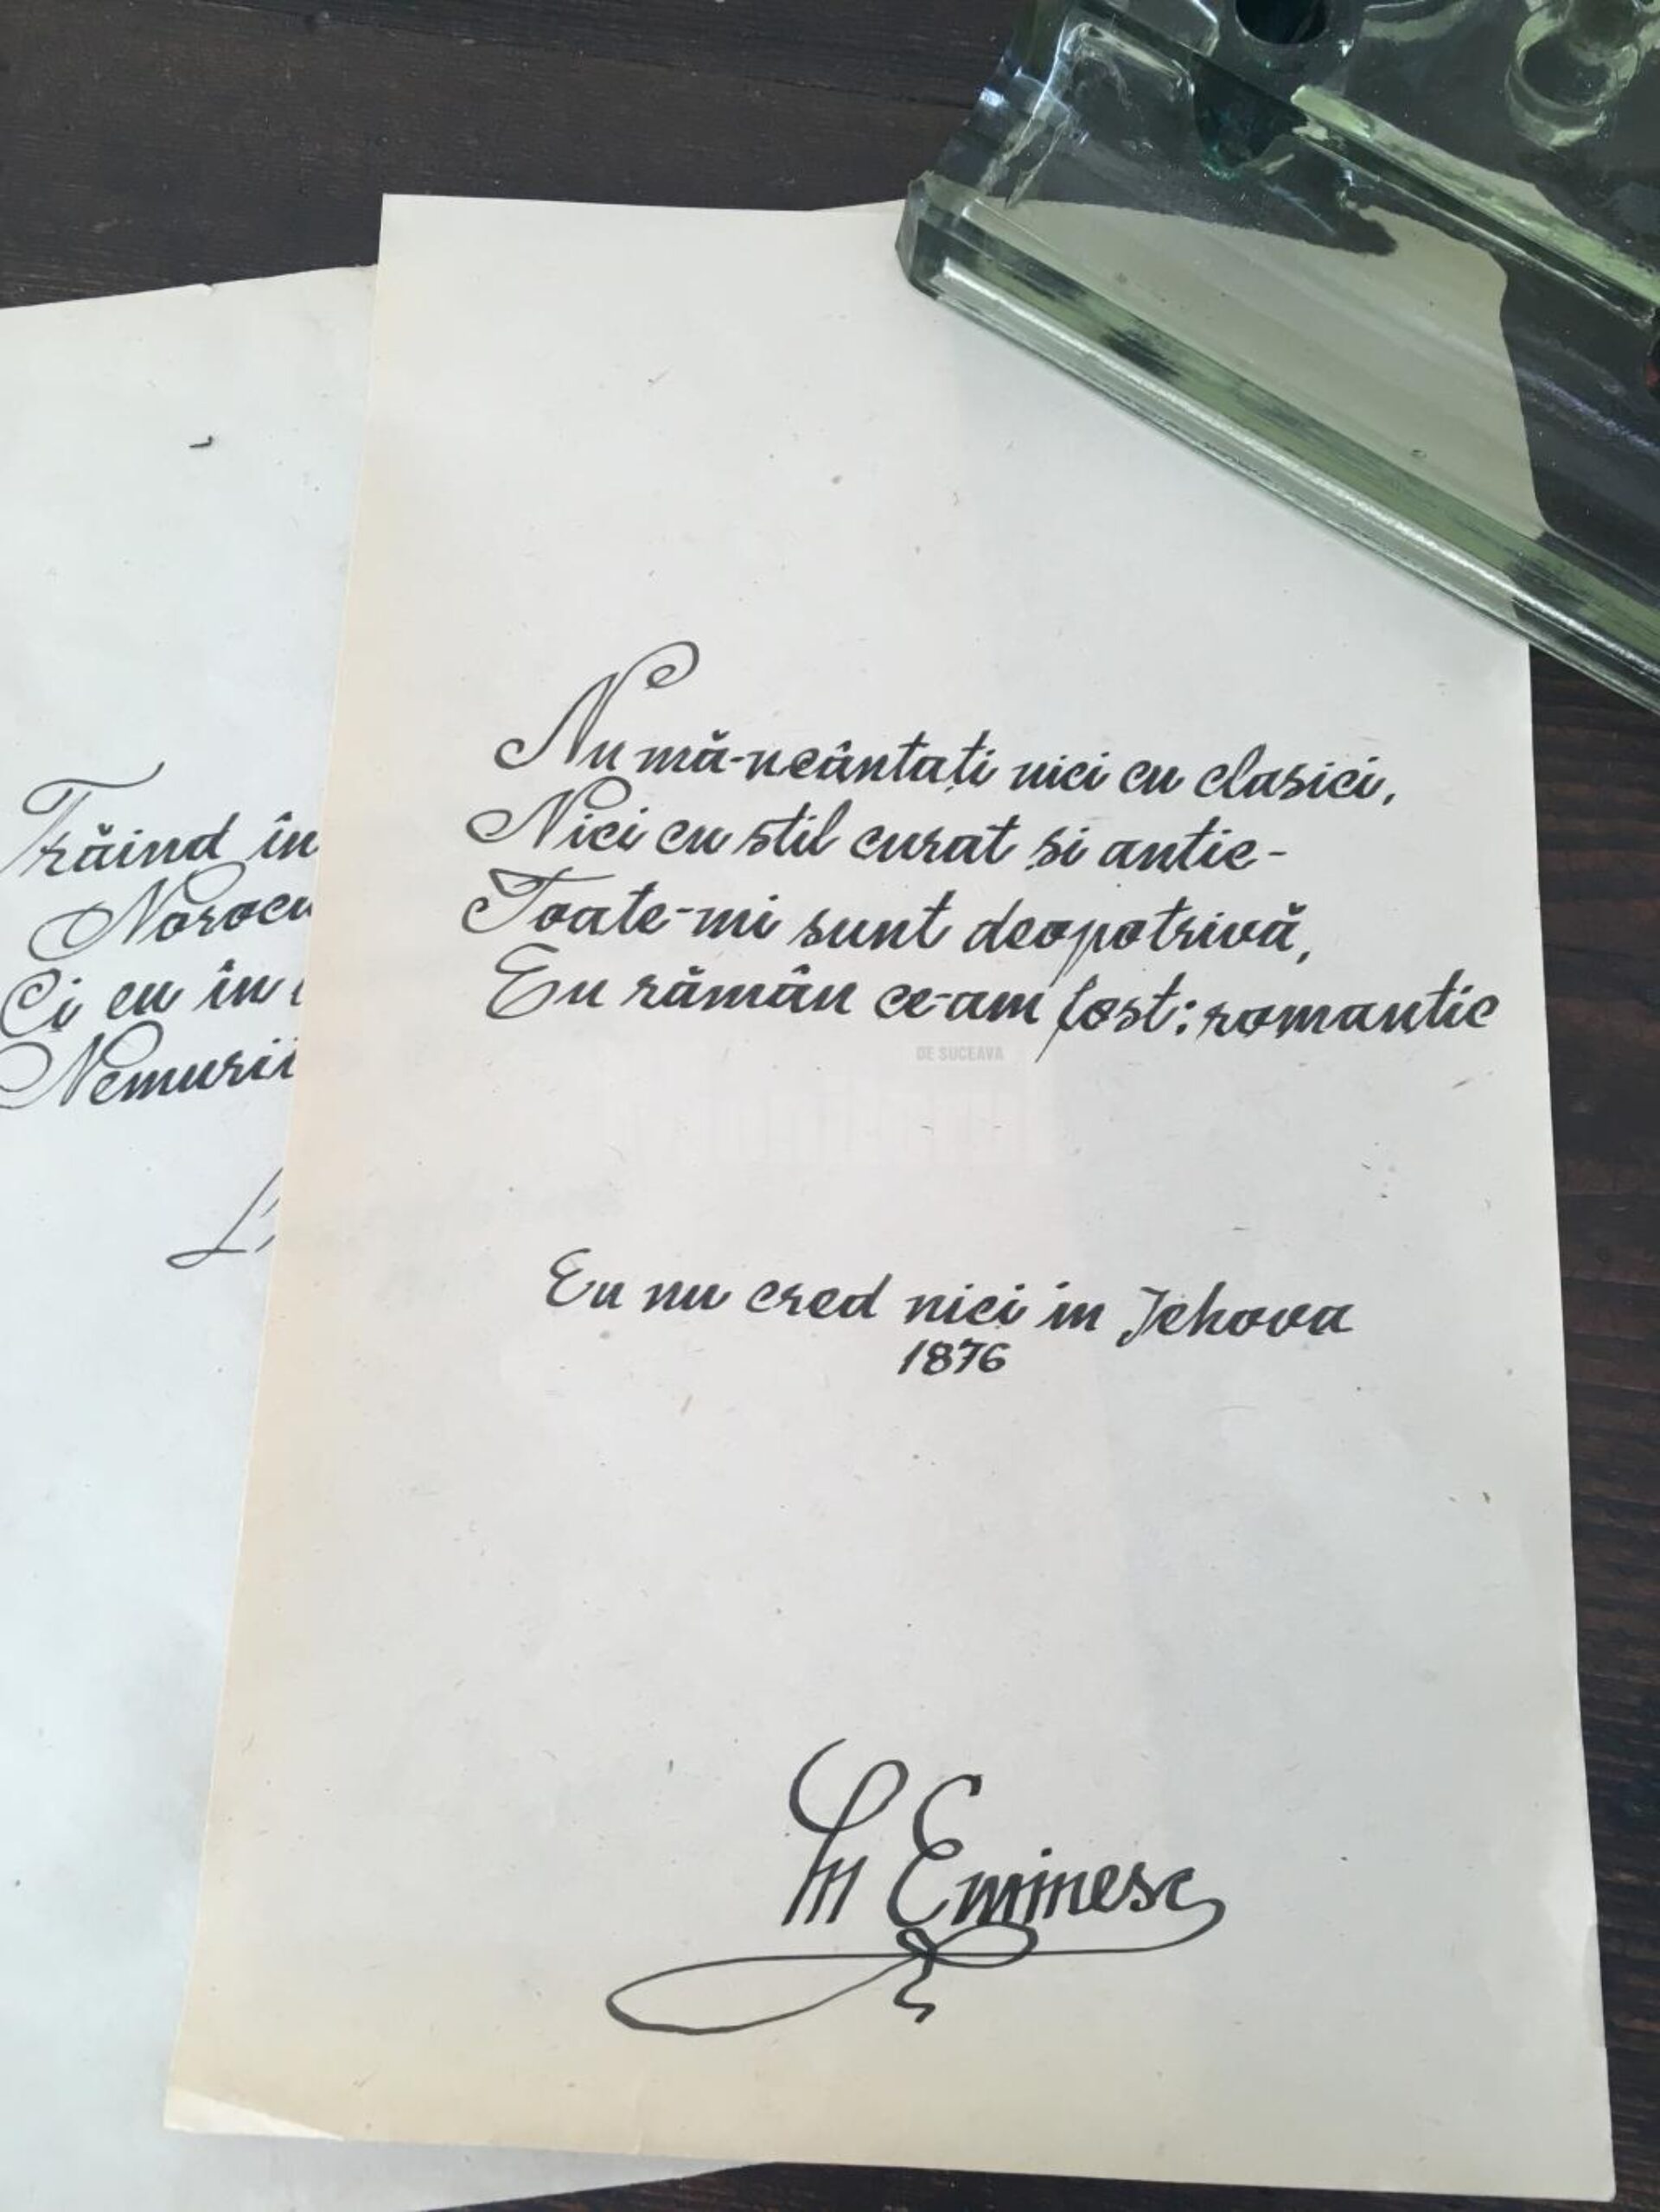 Trăind în
Noroc
Ci eu în
Nemurii
Nu mă-ncântați nici cu clasici,
Nici cu stil curat și antic-
Toate-mi sunt deopotrivă,
Eu rămân ce-am fost: romantic
DE SUCEAVA
Eu nu cred nici in Jehova
1876
M Eminesc